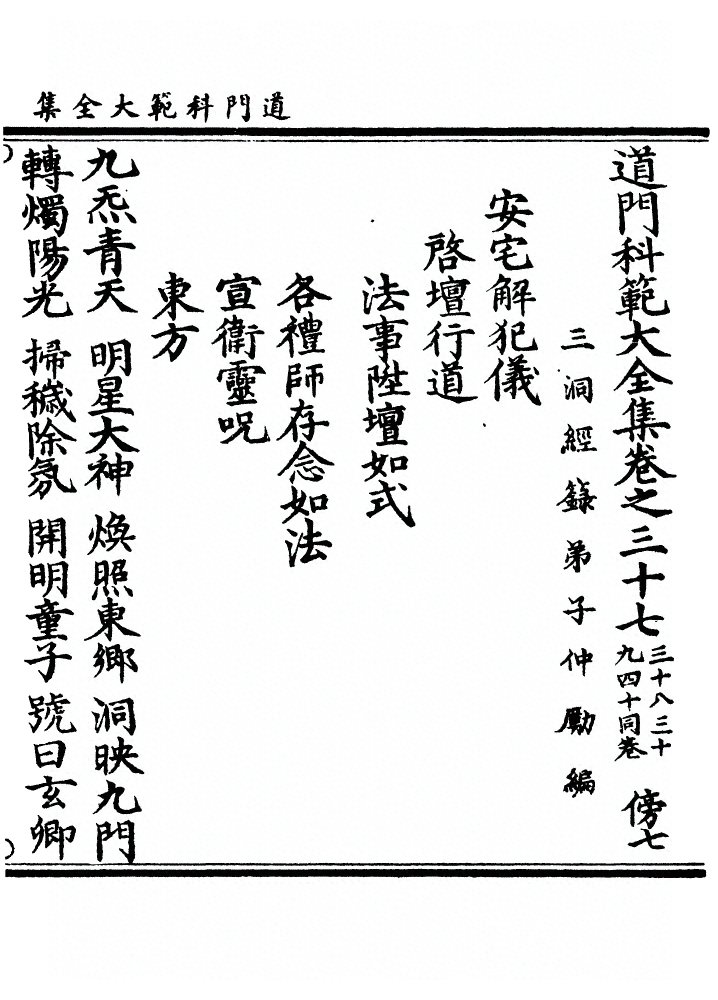 道門科範大全集
道門科範大全集卷之三十七 三十八三十九四十同卷 傍七
三洞經籙弟子仲勵編
安宅解犯儀
啓壇行道
法事陞壇如式
各禮師存念如法
宣衛靈呪
東方
九炁青天 明星大神 煥照東鄉 洞映九門
轉燭陽光 掃穢除氛 開明童子 號曰玄卿